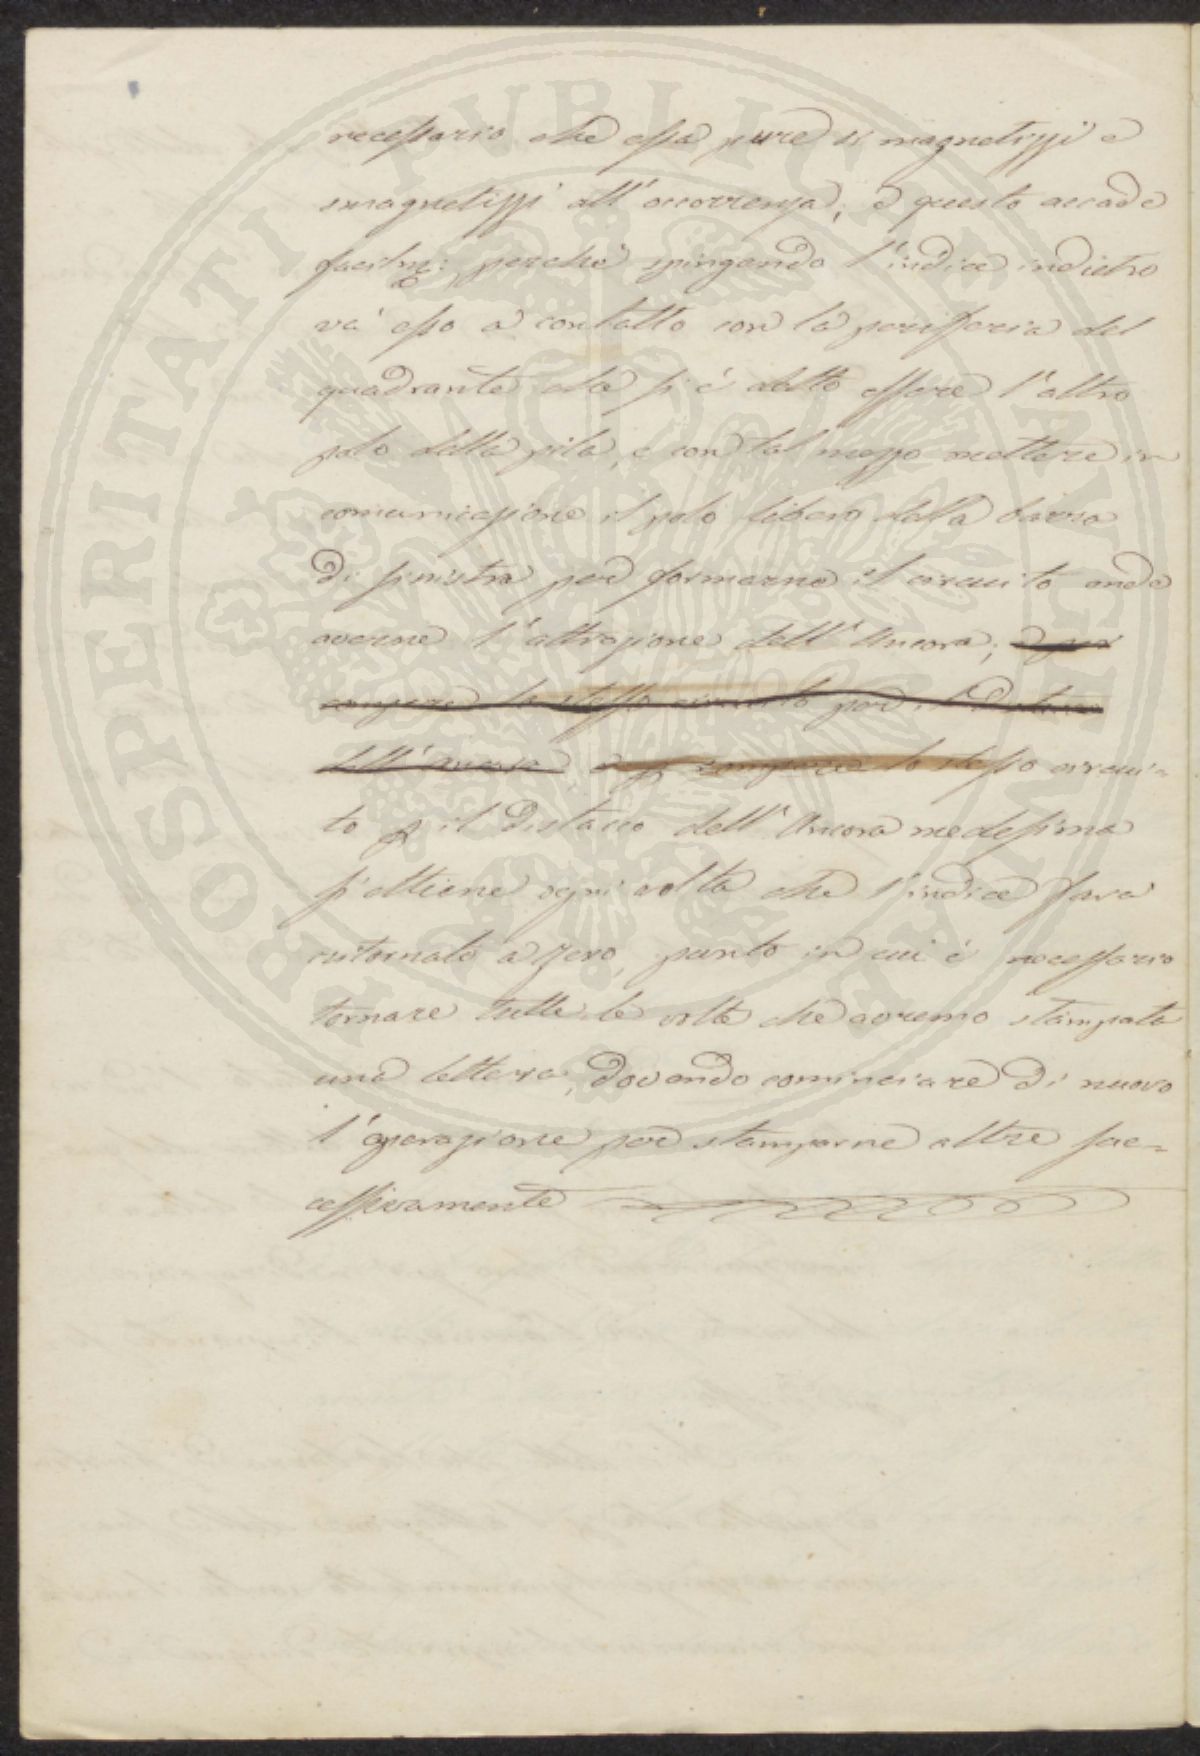 necessario che essa pure si magnetizzi e
smagnetizzi all'occorrenza, e questo accade
facilm: perchè spingendo l'indice indietro
và esso a contatto con la perifferia del
quadrante che si è detto essere l'altro
polo della pila, e con tal mezzo mettere in
comunicazione il polo libero della barra
di sinistra per formarne il circuito onde
averne l'attrazione dell'Ancora, e per
rompere lo stesso circuito per il Distacco
dell'Ancora, e p rompere lo stesso circui=
to p il Distacco dell'Ancora medesima
s'ottiene ogni volta che l'indice sarà
ritornato a zero, punto in cui è necessario
tornare tutte le volte che avremo stampata
una lettera, dovendo cominciare di nuovo
l'operazione per stamparne altre suc=
cessivamente
PROSPERITATI PVBLICAE AVGENDAE